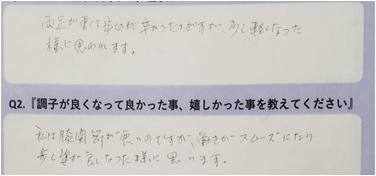 両足が重くて歩くのが辛かったのですが、少し軽くなった
様に思われます。
Q2.『調子が良くなって良かった事、嬉しかった事を教えてください』
私は膝関節が悪いのですが、動きがスムーズになり
歩く姿が良くなった様に思います。